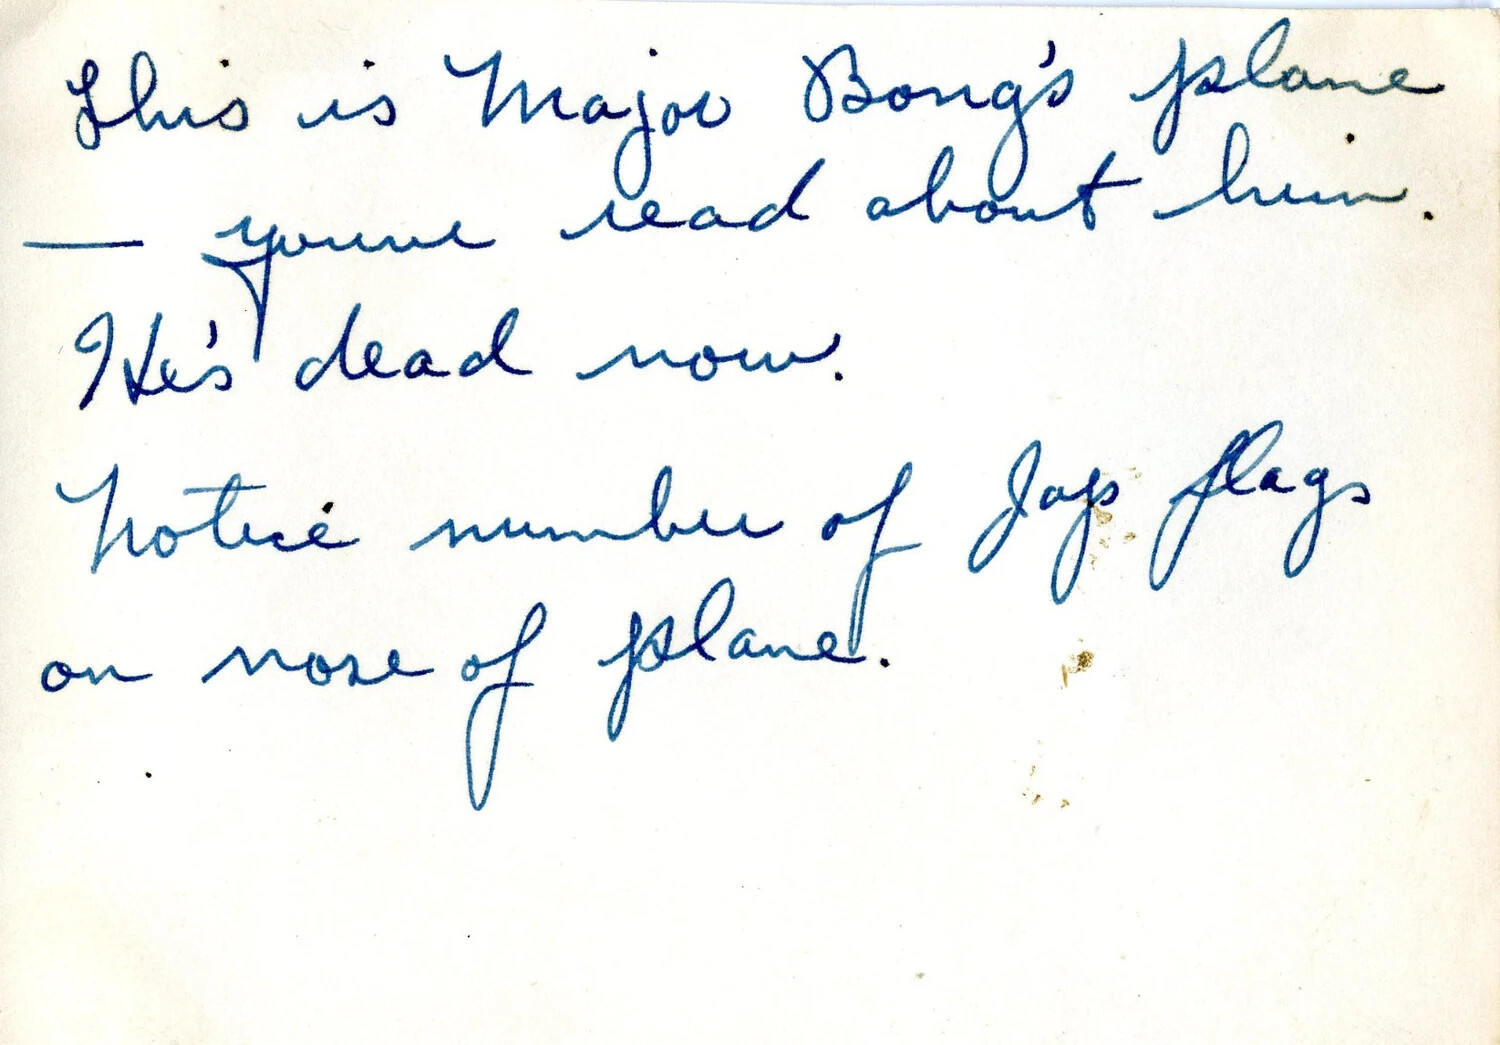 This is Major Bong's plane
— youve read about him.
He's dead now.
Notice number of Jap flags
on nose of plane.